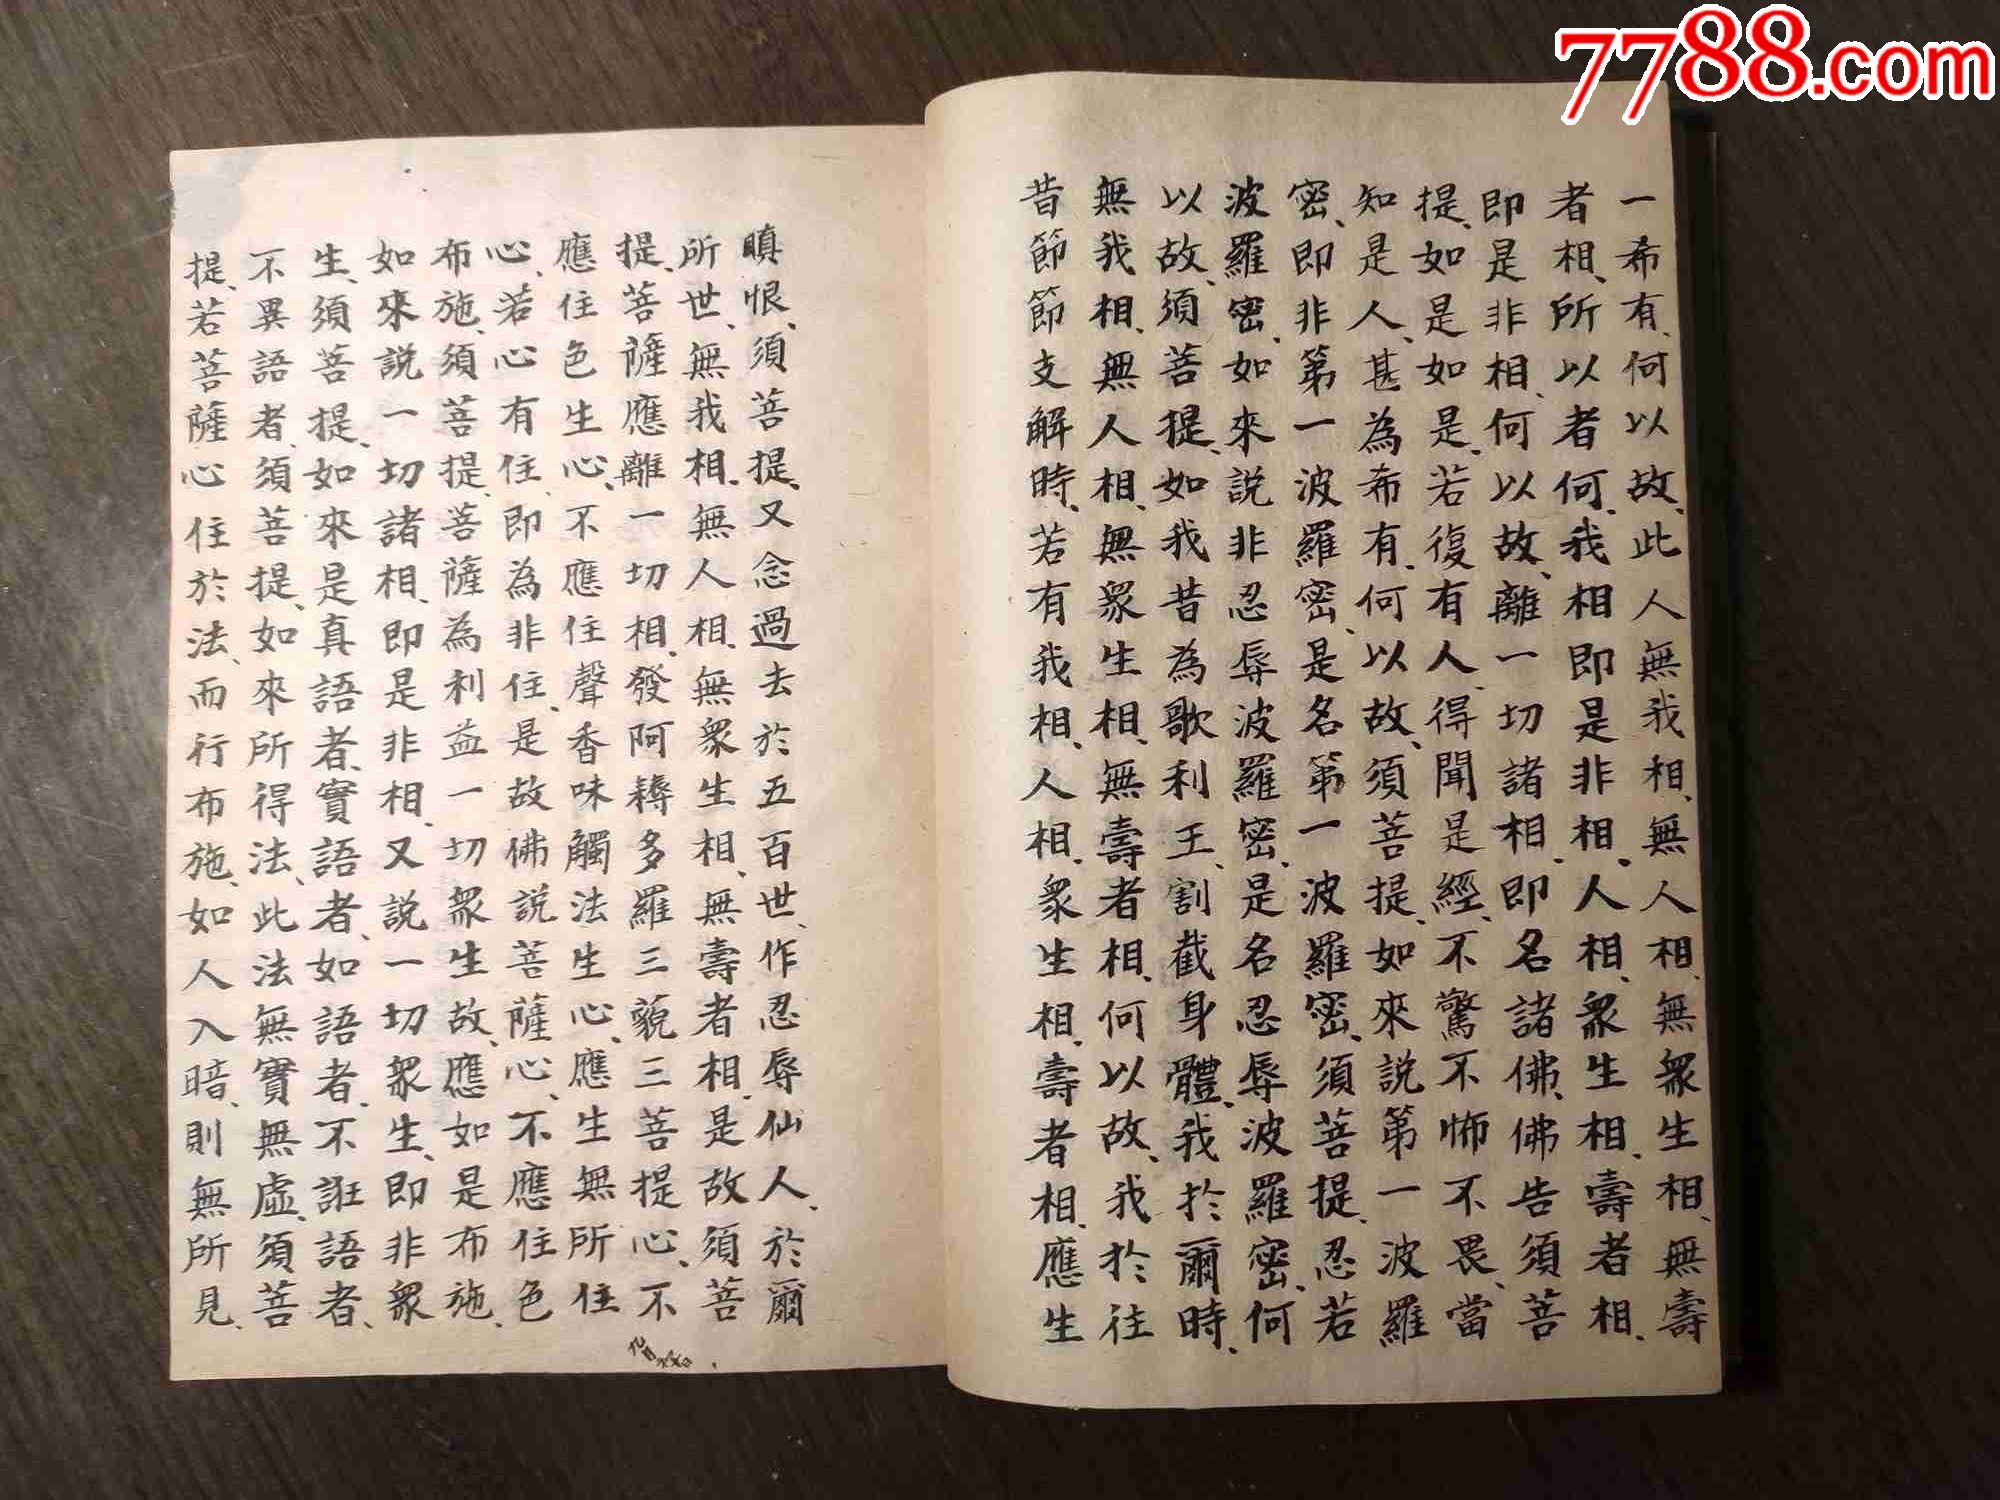 7788.com
一希有、何以故、此人無我相、無人相、無衆生相、無壽
者相、所以者何、我相即是非相、人相、衆生相、壽者相、
即是非相、何以故、離一切諸相、即名諸佛、佛告須菩
提、如是如是、若復有人、得聞是經、不驚不怖不畏、當
知是人、甚為希有、何以故、須菩提、如來説第一波羅
密、即非第一波羅密、是名第一波羅密、須菩提、忍若
波羅密、如來説非忍辱波羅密、是名忍辱波羅密、何
以故、須菩提、如我昔為歌利王、割截身體、我於爾時、
無我相、無人相、無衆生相、無壽者相、何以故、我於往
昔節節支解時、若有我相、人相、衆生相、壽者相、應生
瞋恨、須菩提、又念過去於五百世、作忍辱仙人、於爾
所世、無我相、無人相、無衆生相、無壽者相、是故須菩
提、菩薩應離一切相、發阿耨多羅三藐三菩提心、不
應住色生心、不應住聲香味觸法生心、應生無所住
心、若心有住、即為非住、是故佛説菩薩心、不應住色
布施、須菩提、菩薩為利益一切衆生故、應如是布施、
如來説一切諸相、即是非相、又説一切衆生、即非衆
生、須菩提、如來是真語者、實語者、如語者、不誑語者、
不異語者、須菩提、如來所得法、此法無實無虛、須菩
提、若菩薩心住於法、而行布施、如人入暗、則無所見、